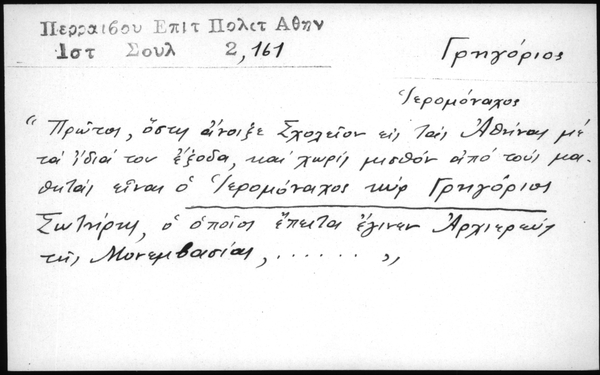 Περραιβου Επιτ Πολιτ Αθην
Ιστ Σουλ 2,161
Γρηγόριος
Ἱερομόναχος
“ Πρῶτος, ὅστις ἄνοιξε Σχολεῖον εἰς τὰς Ἀθήνας μὲ
τὰ ἴδιά του ἔξοδα, καὶ χωρὶς μισθὸν ἀπὸ τοὺς μα-
θητὰς εἶναι ὁ Ἱερομόναχος κὺρ Γρηγόριος
Σωτήρης, ὁ ὁποῖος ἔπειτα ἔγινεν Ἀρχιερεὺς
τῆς Μονεμβασίας, ...... ”